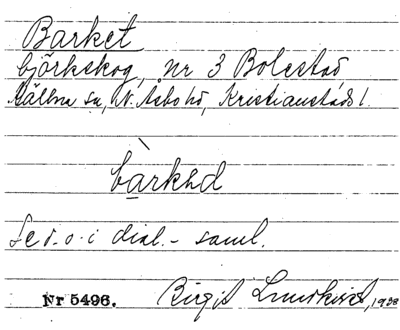 Barket
björkskog, nr 3 Bolestad
Källna sn, N. Åsbo hd, Kristianstads l.
bàrkəd
Se d. o. i dial. - saml.
Nr 5496. Birgit Lundkvist, 1938